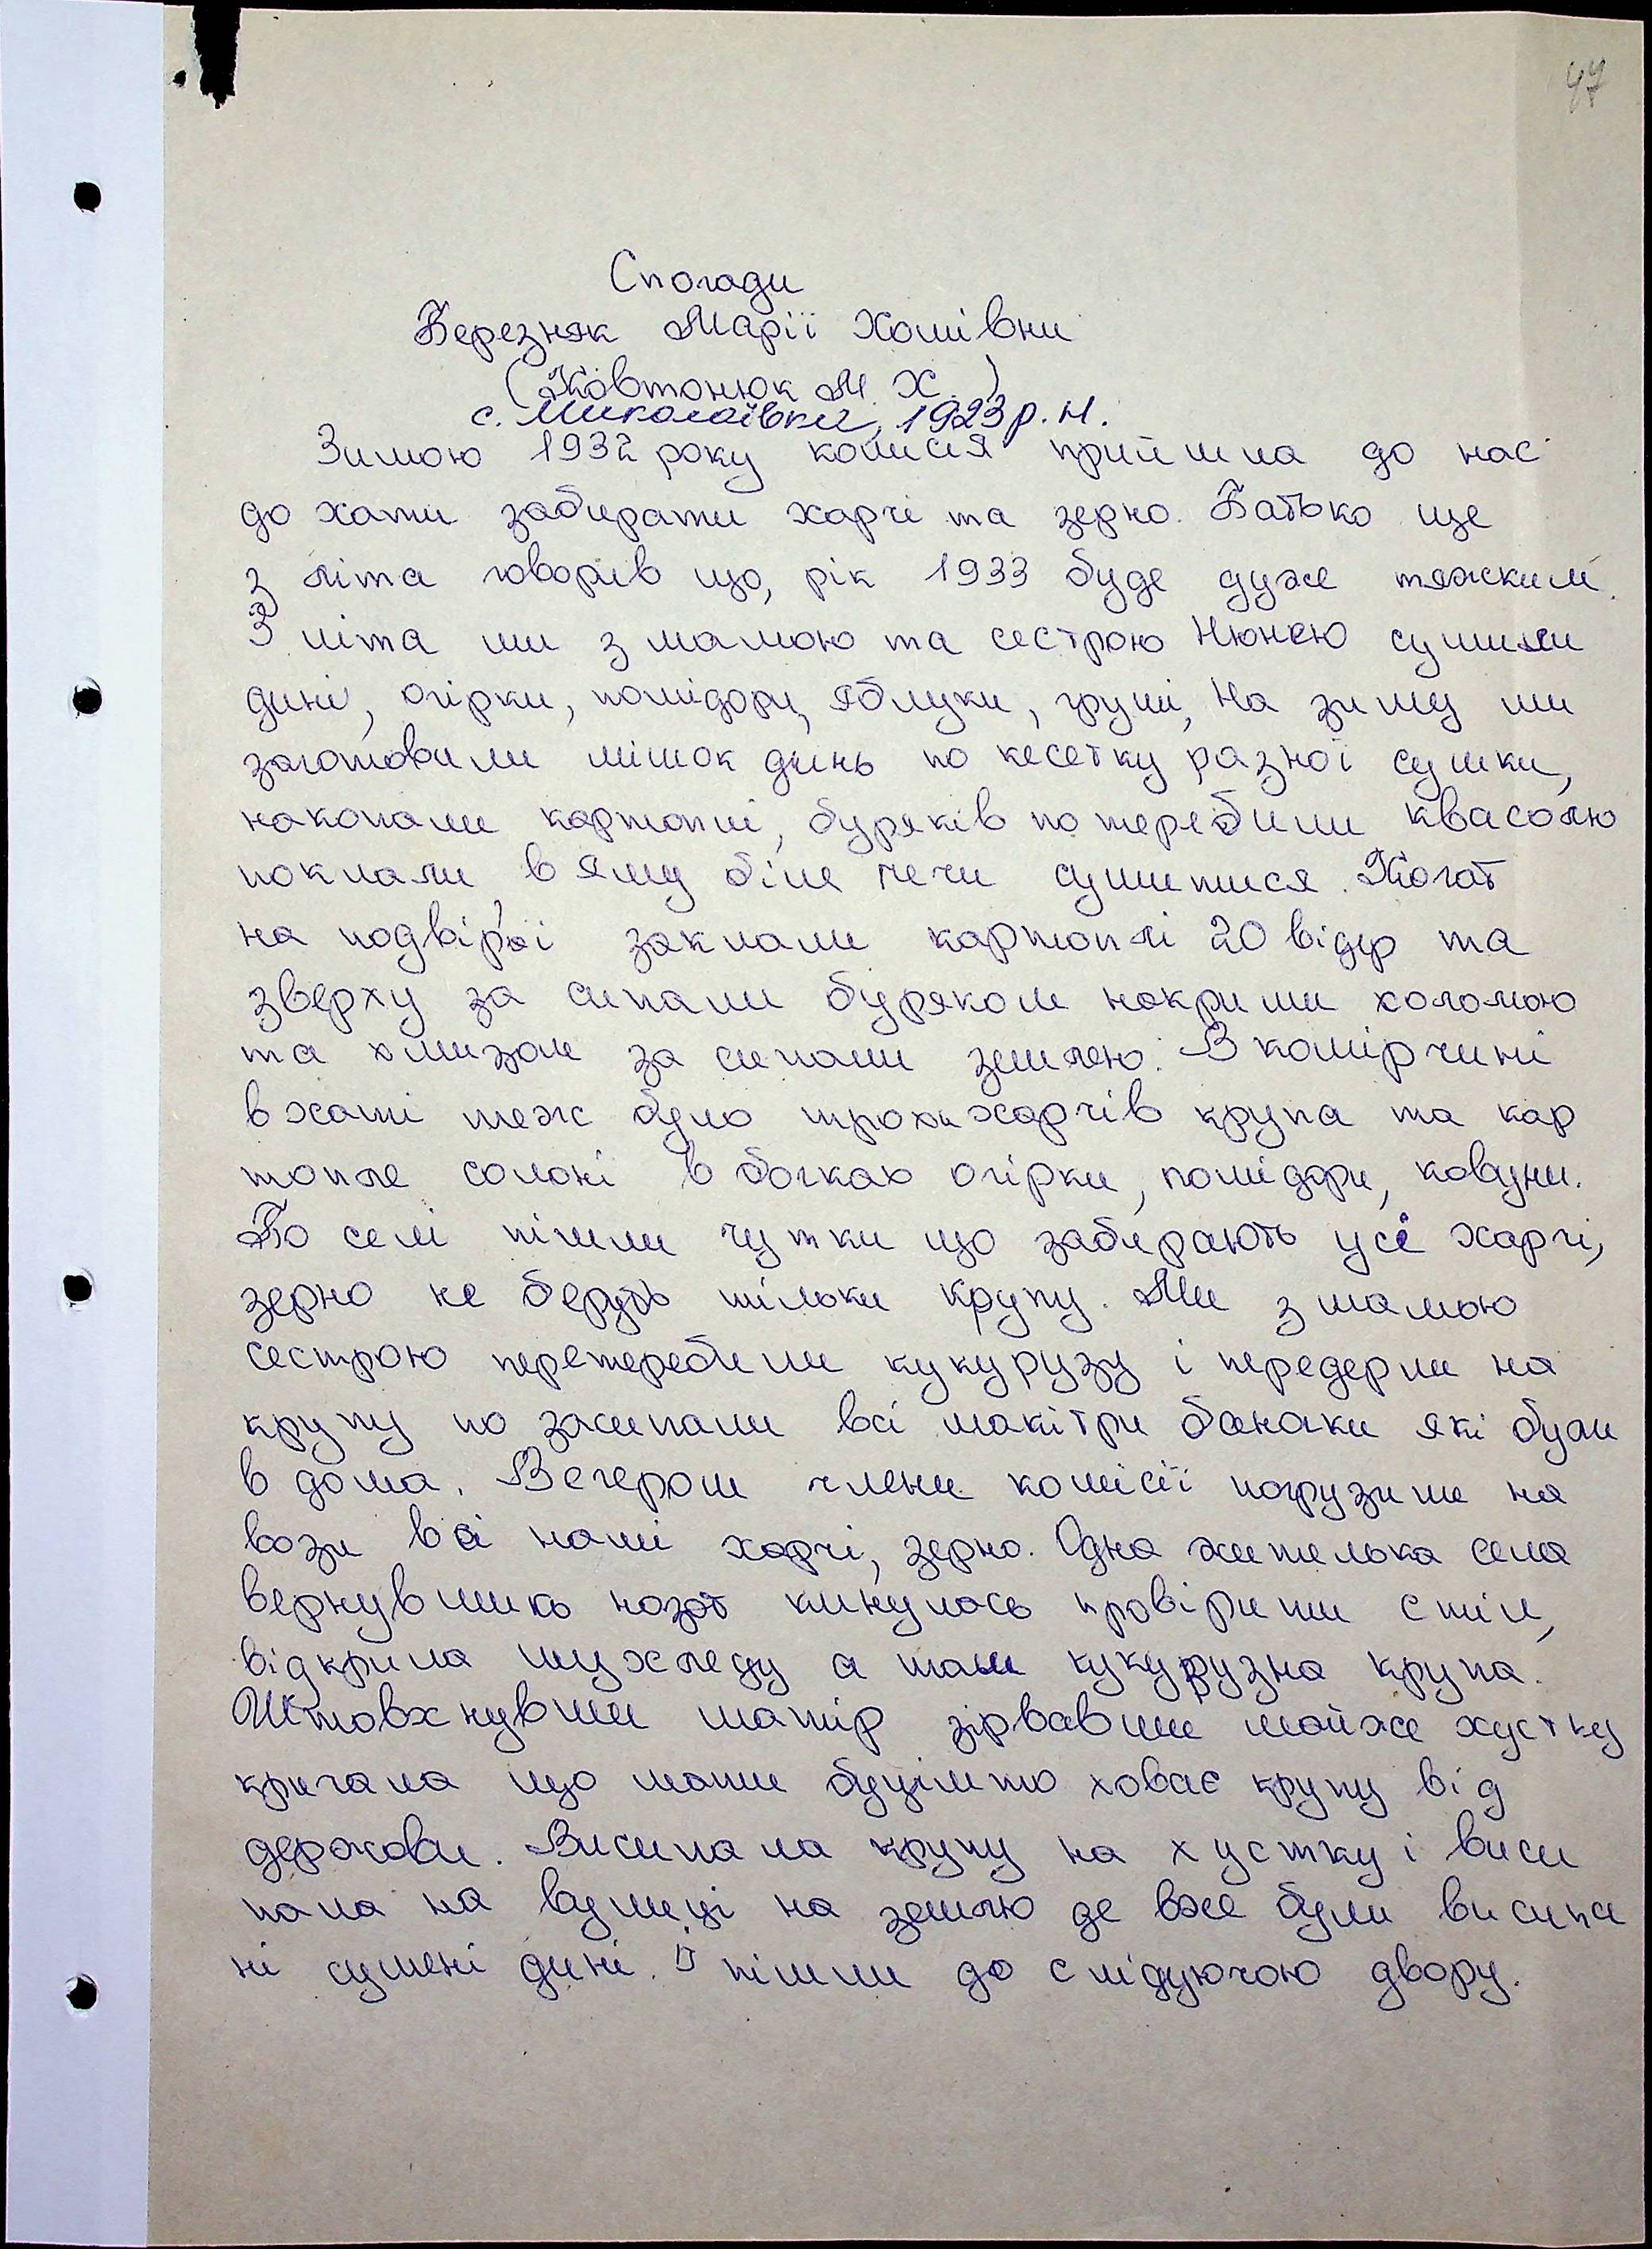 47
Спогади
Березняк Марії Хомівни
(Жовтонюк М. Х.)
с. Миколаївки, 1923 р. н.
Зимою 1932 року комисія прийшла до нас
до хати забирати харчі та зерно. Батько ще
з літа говорив що, рік 1933 буде дуже тяжким.
З літа ми з мамою та сестрою Нюнею сушили
дині, огірки, помідори, яблуки, груші, на зиму ми
заготовили мішок динь по кесетку разної сушки,
накопали картоплі, буряків потеребили квасолю
поклали в яму біля печи сушитися. Когат
на подвір'ї заклали картоплі 20 відер та
зверху за сипали буряком накрили соломою
та хмизом за сипали землею. В комірчині
в хаті теж було трохи харчів крупа та кар
топле солоні в бочках огірки, помідори, кавуни.
По селі пішли чутки що забирають усі харчі,
зерно не беруть тільки крупу. Ми з мамою
сестрою перетеребили кукурузу і передерли на
крупу по засипали всі макітри баняки які були
в дома. Вечером члени комісії погрузили на
вози всі наші харчі, зерно. Одна жителька села
вернувшись назат кинулось провірити стіл,
відкрила шухледу а там кукурузна крупа.
Штовхнувши матір зірвавши майже хустку
кричала що мати буцімто ховає крупу від
держави. Висипала крупу на хустку і виси
пала на вулиці на землю де вже були висипа
ні сушені дині. І пішли до слідуючою двору.